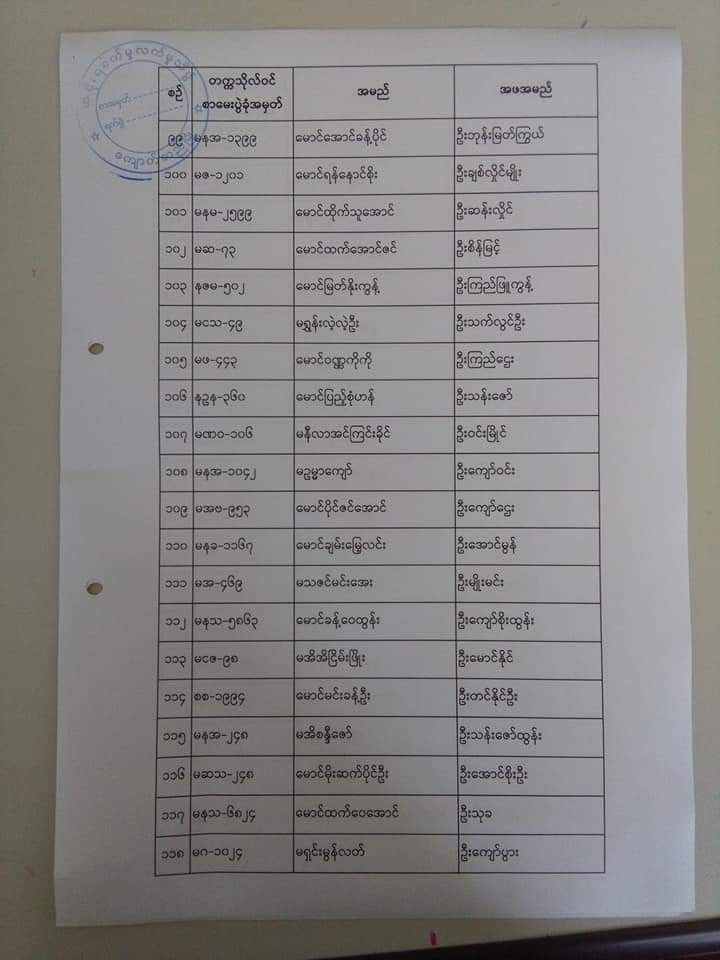 စဉ် တက္ကသိုလ်ဝင် စာမေးပွဲခုံအမှတ် အမည် အဖအမည်
၉၉ မနအ-၁၃၉၉ မောင်အောင်ခန့်ပိုင် ဦးဘုန်းမြတ်ကြွယ်
၁၀၀ မဇ-၁၂၀၁ မောင်ရန်နောင်စိုး ဦးချစ်လှိုင်မျိုး
၁၀၁ မနမ-၂၅၉၉ မောင်ထိုက်သူအောင် ဦးဆန်းလှိုင်
၁၀၂ မဆ-၇၃ မောင်ထက်အောင်ဇင် ဦးစိန်မြင့်
၁၀၃ နဇမ-၅၀၂ မောင်မြတ်နိုးကွန့် ဦးကြည်ဖြူကွန့်
၁၀၄ မငသ-၄၉ မရွှန်းလဲ့လဲ့ဦး ဦးသက်လွင်ဦး
၁၀၅ မဖ-၄၄၃ မောင်ဝဏ္ဏကိုကို ဦးကြည်ဌေး
၁၀၆ နဥန-၃၆၀ မောင်ပြည့်စုံဟန် ဦးသန်းဇော်
၁၀၇ မဏဝ-၁၀၆ မနီလာအင်ကြင်းခိုင် ဦးဝင်းမြိုင်
၁၀၈ မနအ-၁၀၄၂ မဥမ္မာကျော် ဦးကျော်ဝင်း
၁၀၉ မအဗ-၉၅၃ မောင်ပိုင်ဇင်အောင် ဦးကျော်ဌေး
၁၁၀ မနခ-၁၁၆၇ မောင်ချမ်းမြေ့လင်း ဦးအောင်မွန်
၁၁၁ မအ-၄၆၉ မသဇင်မင်းအေး ဦးမျိုးမင်း
၁၁၂ မနသ-၅၈၆၃ မောင်ခန့်ဝေထွန်း ဦးကျော်စိုးထွန်း
၁၁၃ မငဇ-၉၈ မအိအိငြိမ်းဖြိုး ဦးမောင်နိုင်
၁၁၄ စစ-၁၉၉၄ မောင်မင်းခန့်ဦး ဦးတင်နိုင်ဦး
၁၁၅ မနအ-၂၄၈ မအိစန္ဒီဇော် ဦးသန်းဇော်ထွန်း
၁၁၆ မဆသ-၂၄၈ မောင်မိုးဆက်ပိုင်ဦး ဦးအောင်စိုးဦး
၁၁၇ မနသ-၆၈၂၄ မောင်ထက်ဝေအောင် ဦးသုခ
၁၁၈ မဂ-၁၀၂၄ မရှင်းမွန်လတ် ဦးကျော်ပွား